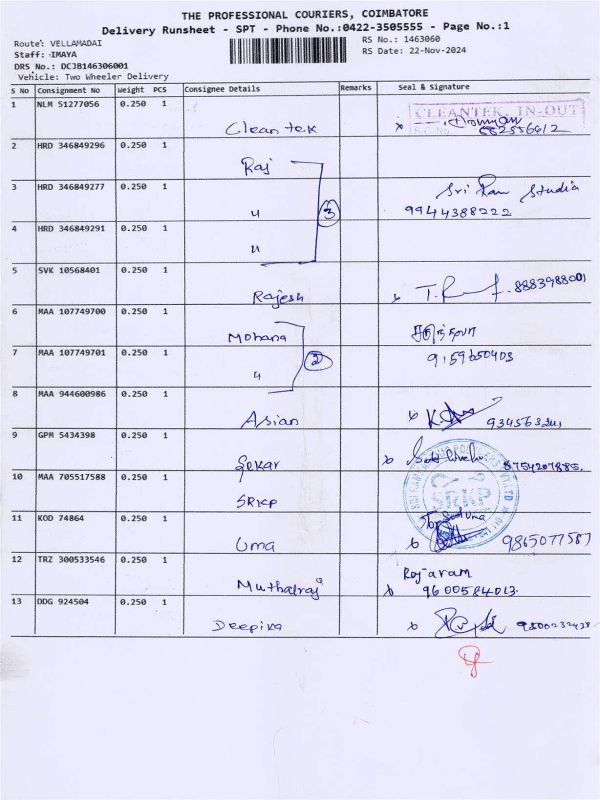 THE PROFESSIONAL COURIERS, COIMBATORE
Delivery Runsheet - SPT - Phone No.:0422-3505555 - Page No.:1
Route: VELLAMADAI
Staff: IMAYA
DRS No.: DCJB146306001
Vehicle: Two Wheeler Delivery
RS No.: 1463060
RS Date: 22-Nov-2024
S No Consignment No Weight PCS Consignee Details Remarks Seal & Signature
1 NLM 51277056 0.250 1 Cleantek CLEANTEK IN-OUT
2 HRD 346849296 0.250 1 Raj
3 HRD 346849277 0.250 1 " 3 Sri Ram Studio
9944388222
4 HRD 346849291 0.250 1 "
5 SVK 10568401 0.250 1 Rajesh 8883988001
6 MAA 107749700 0.250 1 Mohana
7 MAA 107749701 0.250 1 " 2 9159650403
8 MAA 944600986 0.250 1 Asian
9 GPM 5434398 0.250 1 Sekar 8754207885
10 MAA 705517588 0.250 1 SRKP SRKP
11 KOD 74864 0.250 1 Uma 9865077587
12 TRZ 300533546 0.250 1 Muthalraj Rajaram
9600584013
13 DDG 924504 0.250 1 Deepika 9500232438